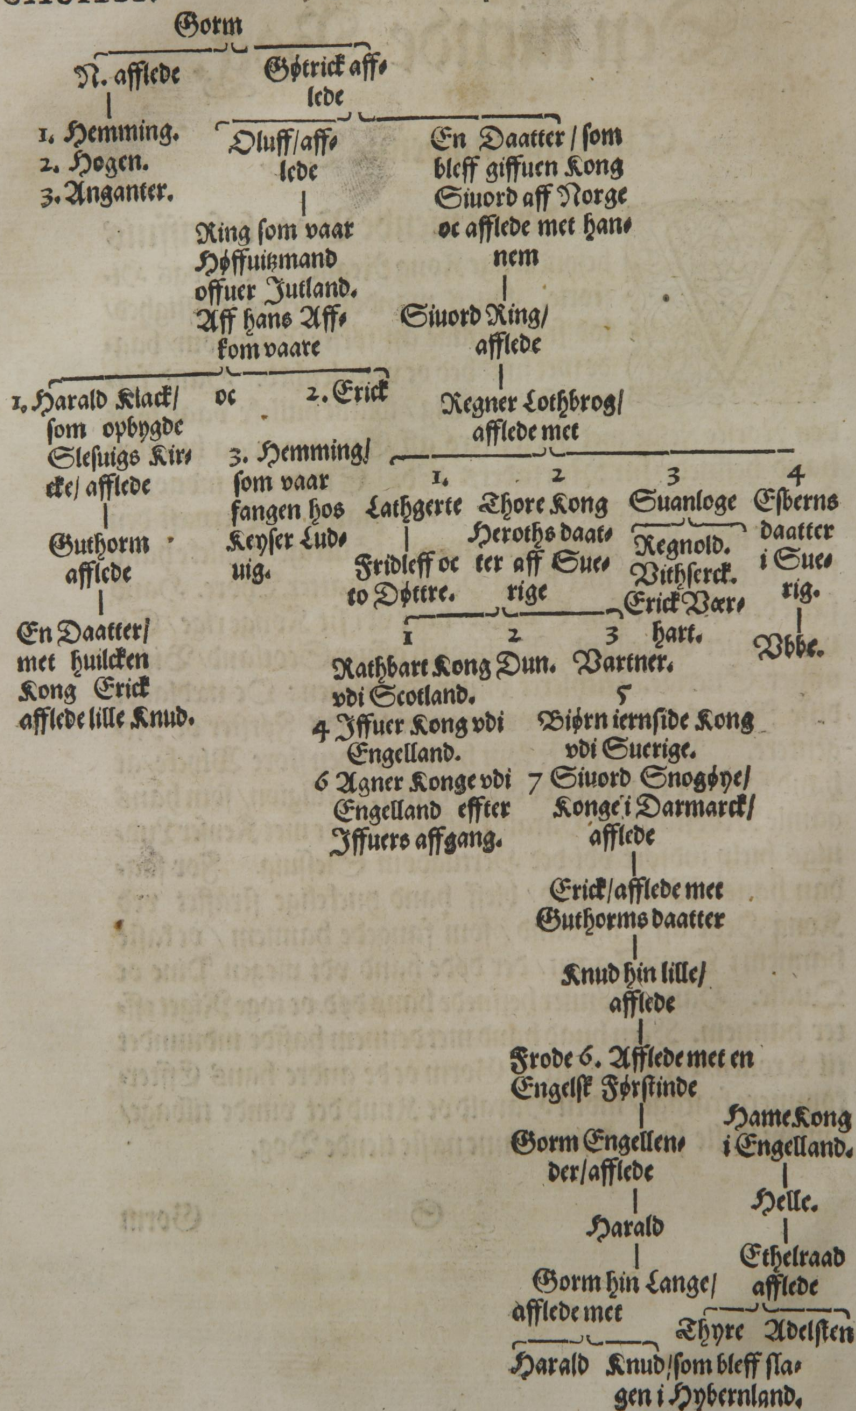 Gorm
N. afflede
Gøtrick aff⸗
lede
1. Hemming.
2. Hogen.
3. Anganter.
Oluff/aff⸗
lede
Ring som vaar
Høffuitzmand
offuer Jutland.
Aff hans Aff⸗
kom vaare
En Daatter / som
bleff giffuen Kong
Siuord aff Norge
oc afflede met han⸗
nem
Siuord Ring/
afflede
Regner Lothbrog/
afflede met
1. Harald Klack/ oc 2. Erick
som opbygde
Slesuigs Kir⸗
cke/ afflede
Guthorm
afflede
En Daatter/
met huilcken
Kong Erick
afflede lille Knud.
3. Hemming/
som vaar
fangen hos
Keyser Lud⸗
uig.
1.
Lathgerte
Fridleff oc
to Døttre.
2
Thore Kong
Heroths daat⸗
ter aff Sue⸗
rige
3
Suanloge
Regnold.
Vithserck.
Erick Vær⸗
hart.
4
Esberns
daatter
i Sue⸗
rig.
Vbbe.
1 2 3
Rathbart Kong Dun. Vartner.
vdi Scotland.
4 Jffuer Kong vdi
Engelland.
5
Biørn iernside Kong
vdi Suerige.
6 Agner Konge vdi
Engelland effter
Jffuers affgang.
7 Siuord Snogøye/
Konge i Darmarck/
afflede
Erick/afflede met
Guthorms daatter
Knud hin lille/
afflede
Frode 6. Afflede met en
Engelsk Førstinde
Gorm Engellen⸗
der/afflede
Harald
Gorm hin Lange/
afflede met
Hame Kong
i Engelland.
Helle.
Ethelraad
afflede
Thyre Adelsten
Harald Knud/som bleff sla⸗
gen i Hybernland.